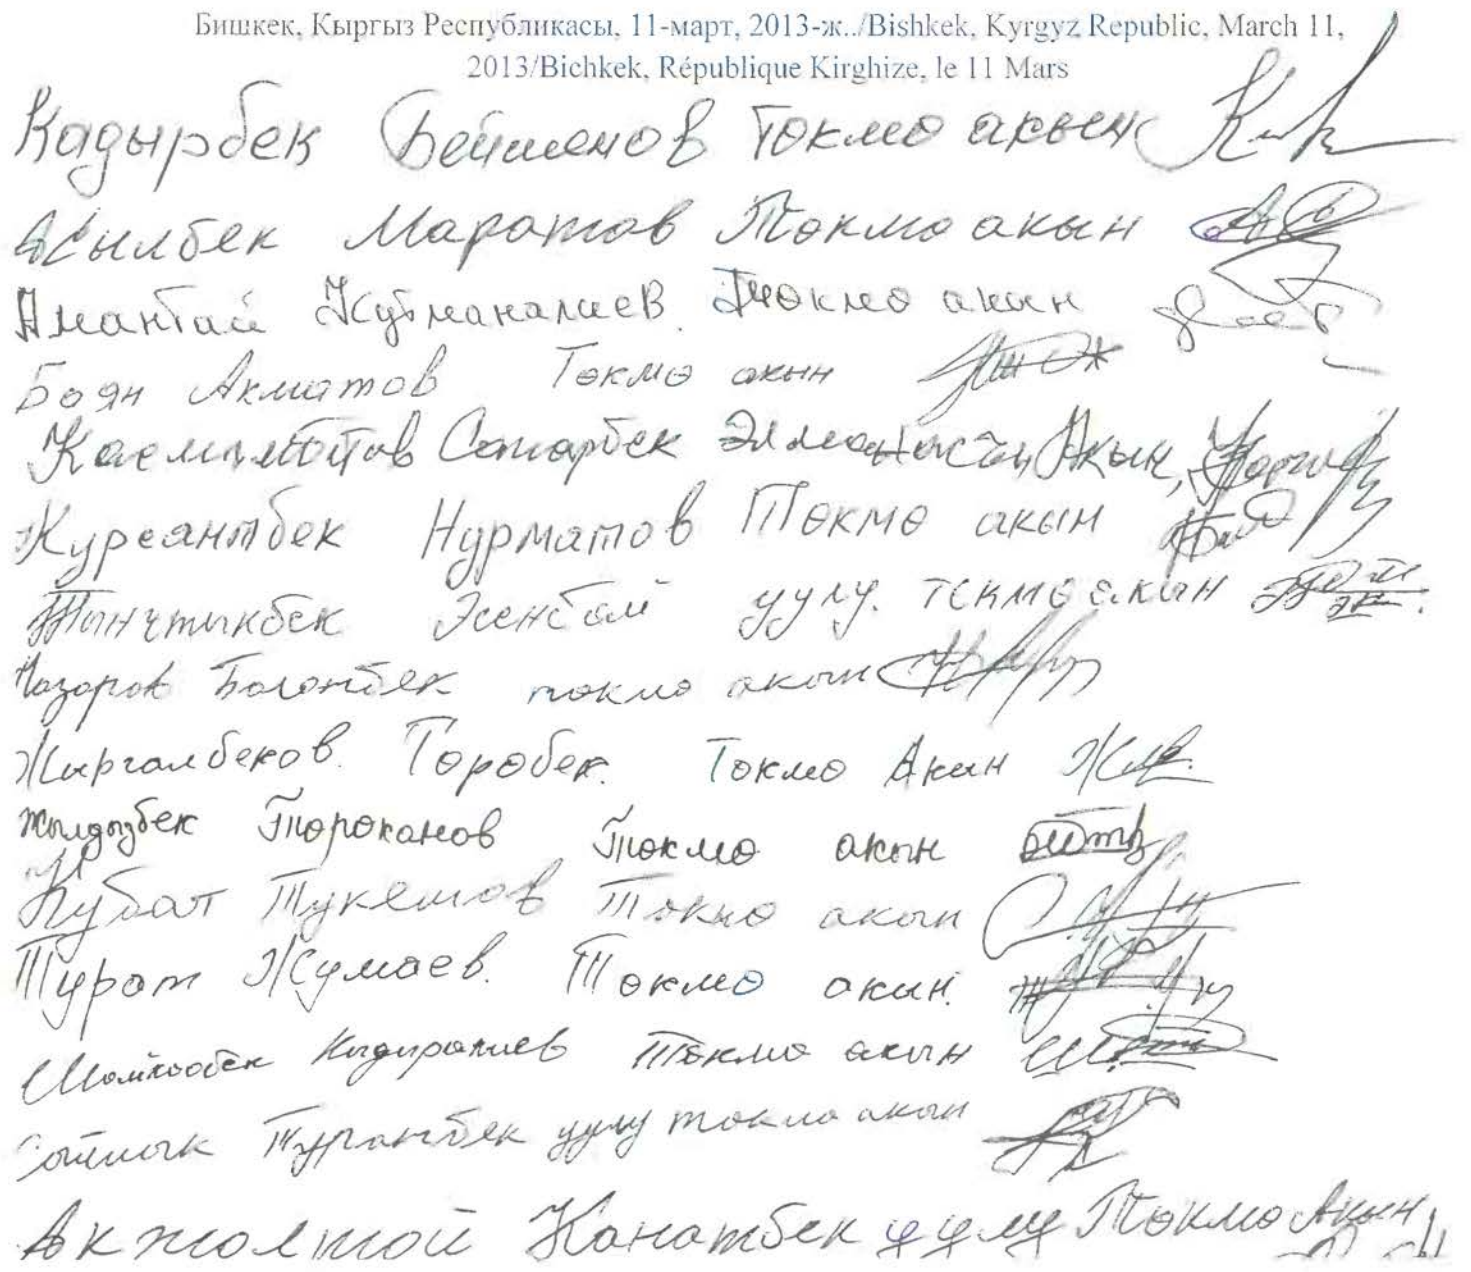 Бишкек, Кыргыз Республикасы, 11-март, 2013-ж../Bishkek, Kyrgyz Republic, March 11,
2013/Bichkek, République Kirghize, le 11 Mars
Кадырбек Бейшенов Төкмө акын
Асылбек Маратов Төкмө акын
Амантай Кутманалиев. Төкмө акын
Боян Акматов Төкмө акын
Сапарбек Акын,
Курсантбек Нурматов Төкмө акын
Тынчтыкбек Эсенбай уулу. төкмө акын
Назаров Болотбек төкмө акын
Жыргалбеков. Төрөбек. Төкмө Акын
Жылдызбек Төрөканов Төкмө акын
Кубат Тукешов Төкмө акын
Турат Жумаев. Төкмө акын.
Кыдыралиев Төкмө акын
Турганбек уулу төкмө акын
Акжолтой Канатбек уулу Төкмө Акын